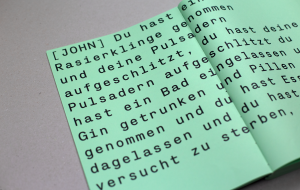 [JOHN] Du hast ein
Rasierklinge genommen
und deine Pulsadern
aufgeschlitzt, du hast deine
Pulsadern aufgeschlitzt du
hast ein Bad eingelassen u
Gin getrunken und Pillen
genommen und du hast Es
dagelassen und du hast
versucht zu sterben,